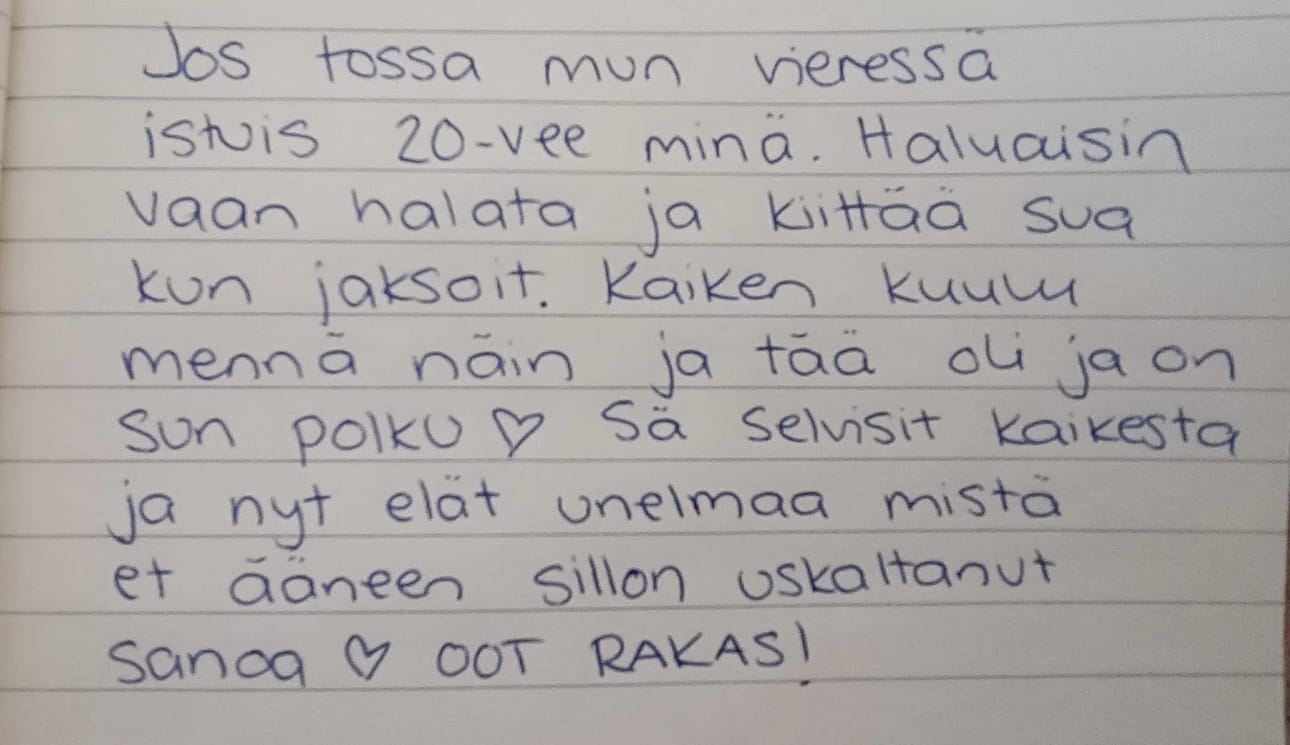 Jos tossa mun vieressä
istuis 20-vee minä. Haluaisin
vaan halata ja kiittää sua
kun jaksoit. Kaiken kuuluu
mennä näin ja tää oli ja on
sun polku ♡ Sä selvisit kaikesta
ja nyt elät unelmaa mistä
et ääneen sillon uskaltanut
sanoa ♡ OOT RAKAS!